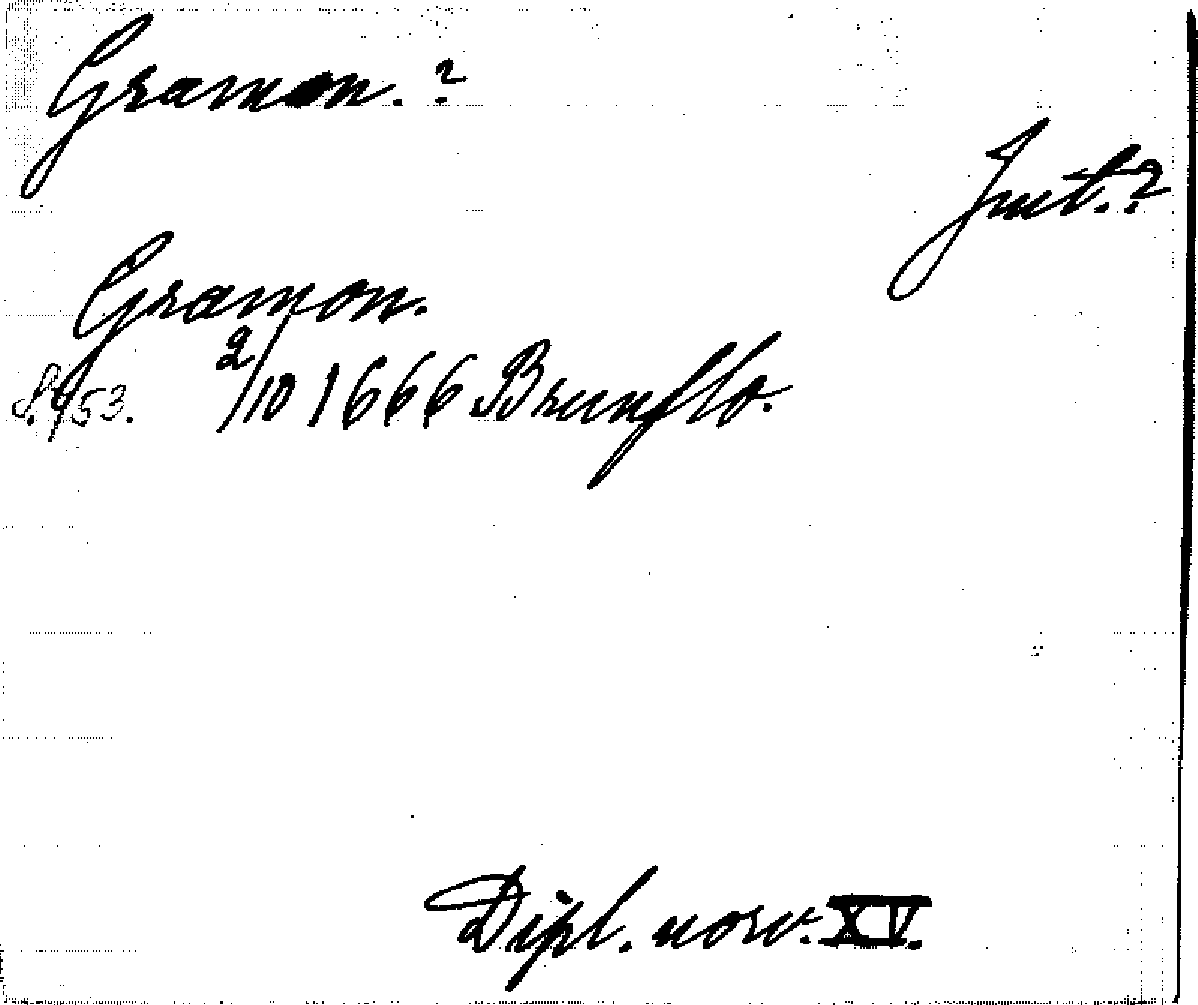 Gramon.?
Jmt.?
Gramon.
S. 953. 2/10 1666 Brunflo.
Dipl. norv. XV.